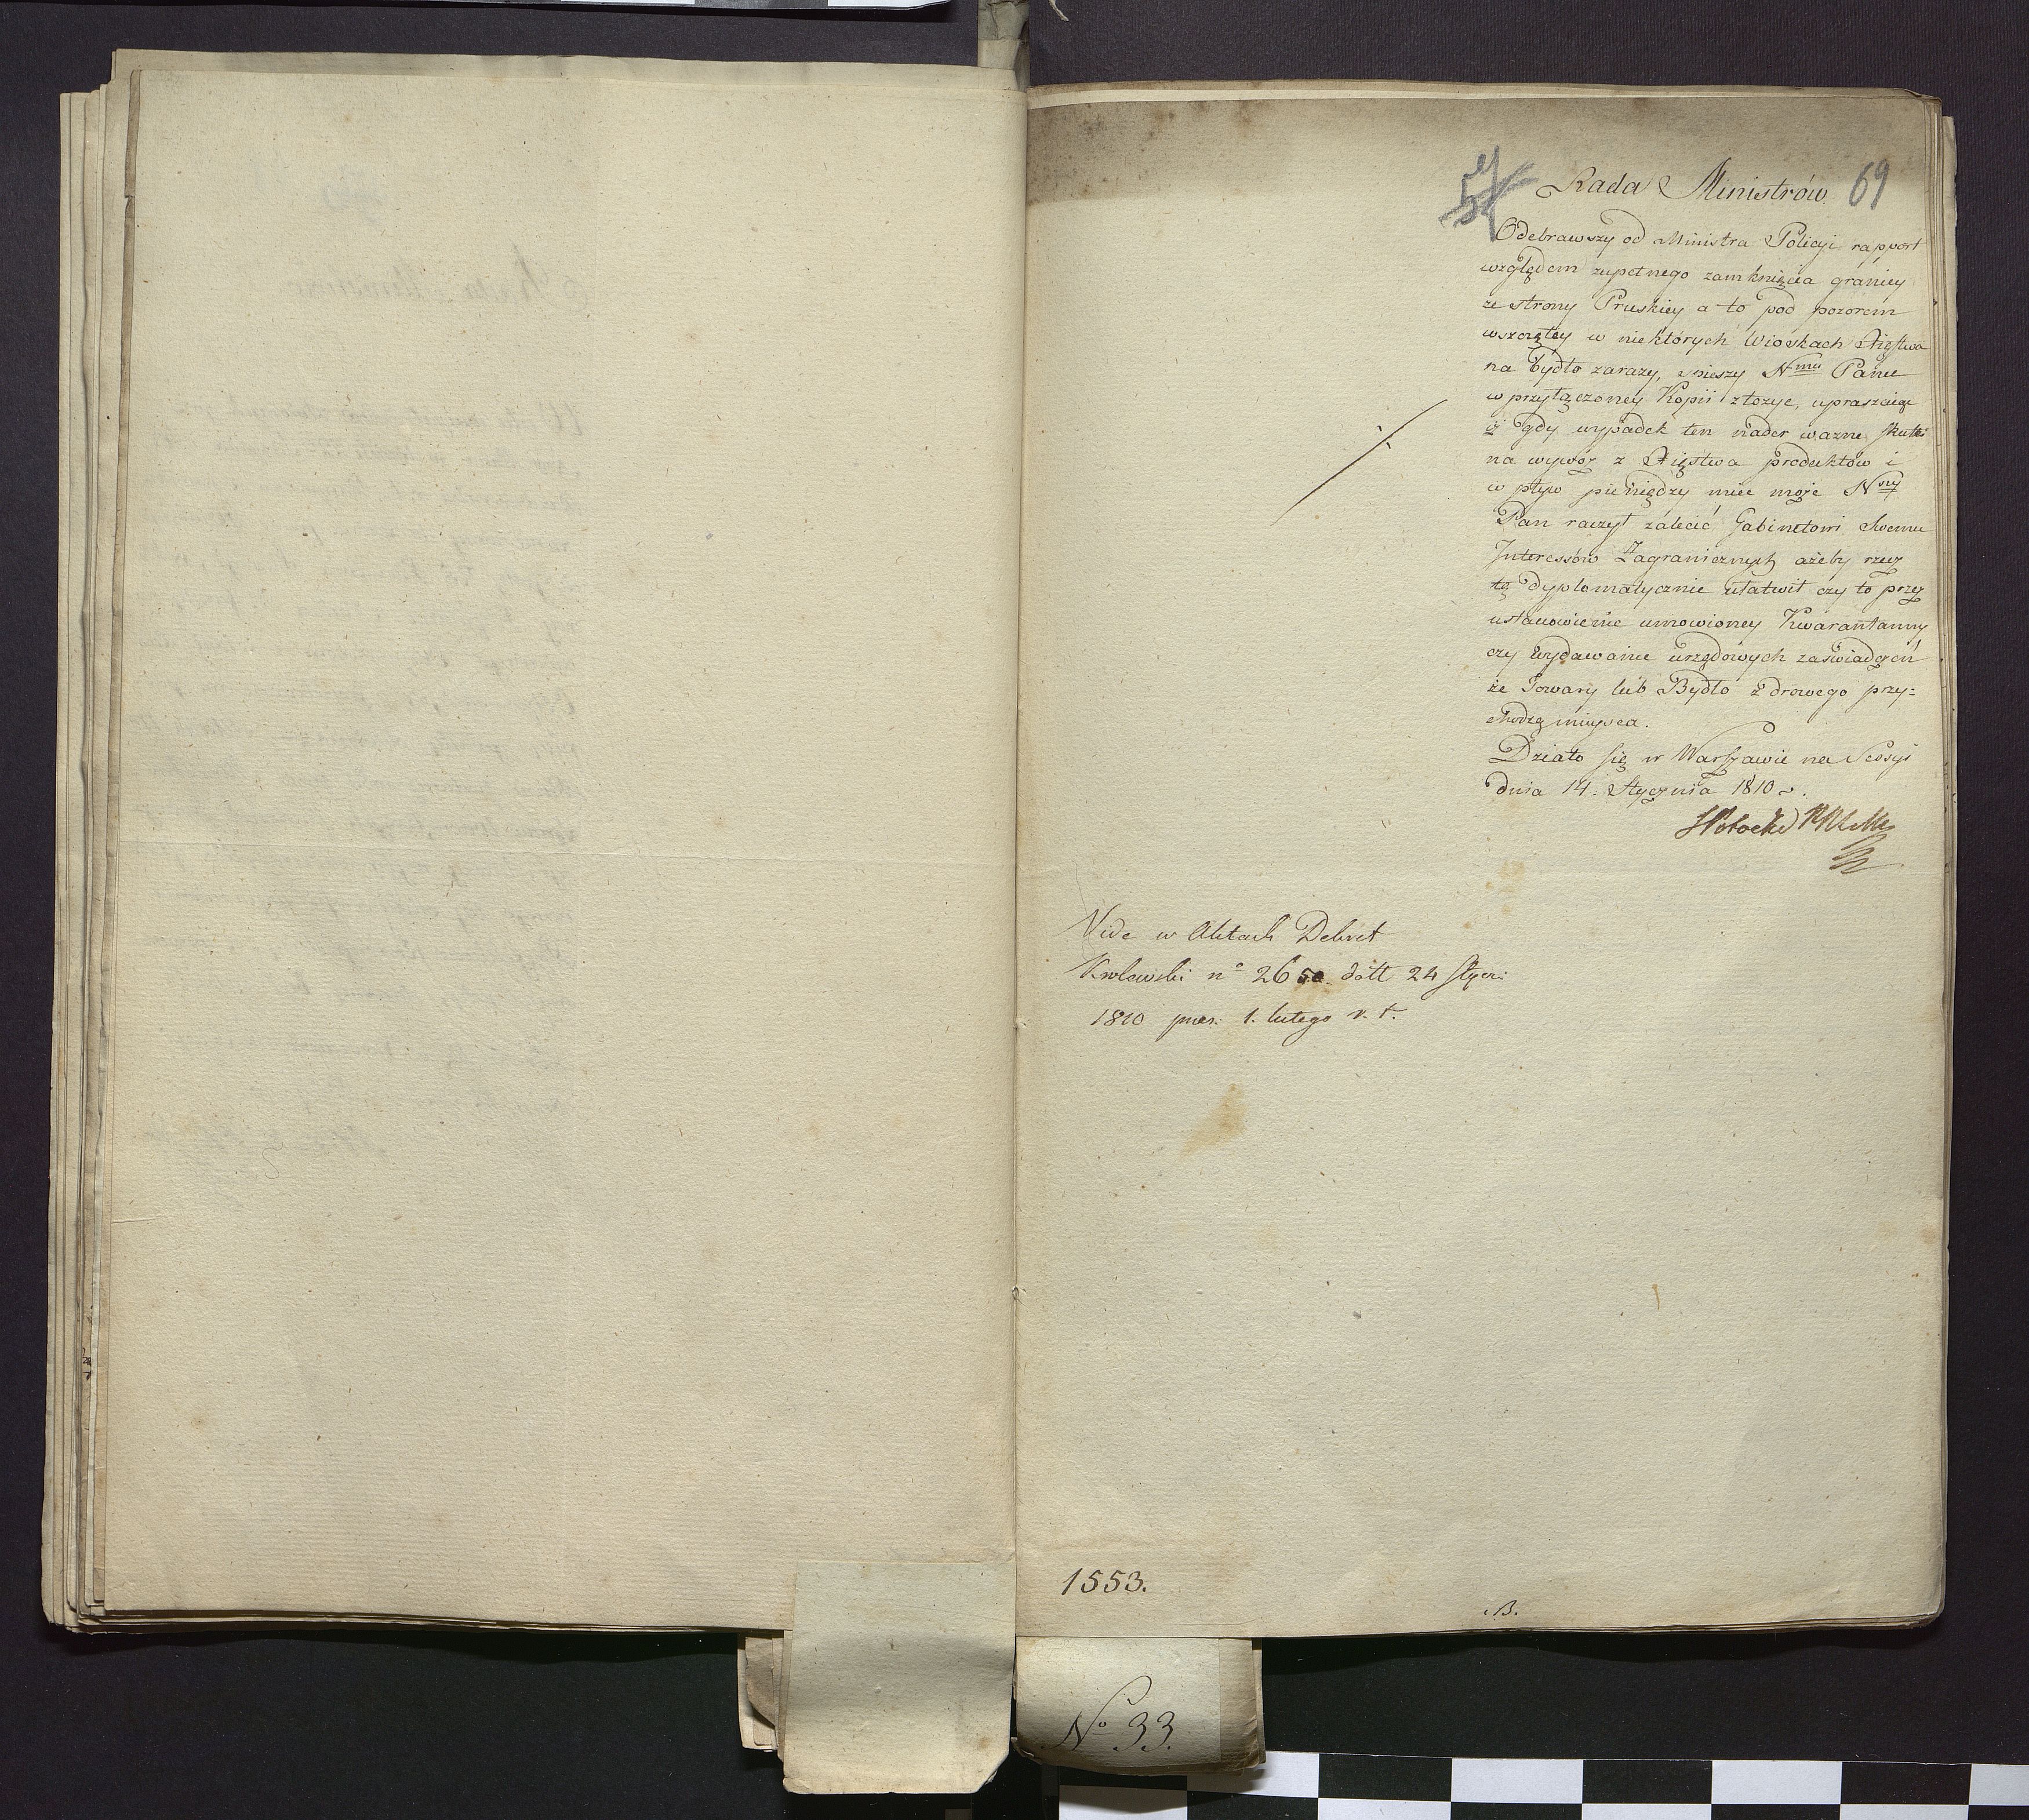 Rada Ministrów 69
Odebrawszy od Ministra Policyi rapport
względem zupełnego zamknięcia granicy
ze strony Pruskiey a to pod pozorem
wszczętey w niektórych Wioskach Xięstwa
na bydło zarazy, śpieszy Nmu Panu
w przyłączoney Kopii złożyć, upraszaiąc
iż gdy wypadek ten nader ważne skutki
na wywóz z Xięstwa produktów i
wpływ pieniędzy mieć może Nny
Pan raczył zalecić Gabinetowi Swemu
Interessów Zagranicznych ażeby rzecz
tę dyplomatycznie ułatwił czy to przez
ustanowienie umowioney Kwarantanny
czy wydawanie urzędowych zaświadczeń
że Towary lub Bydło z drowego przy=
chodzą mieysca.
Działo się w Warszawie na Sessyi
dnia 14. Stycznia 1810
SPotocki
Vide w Aktach Dekret
Krolewski no 2650. datt 24 Stycz:
1810 prez. 1. lutego r. t.
1553.
B.
No 33.